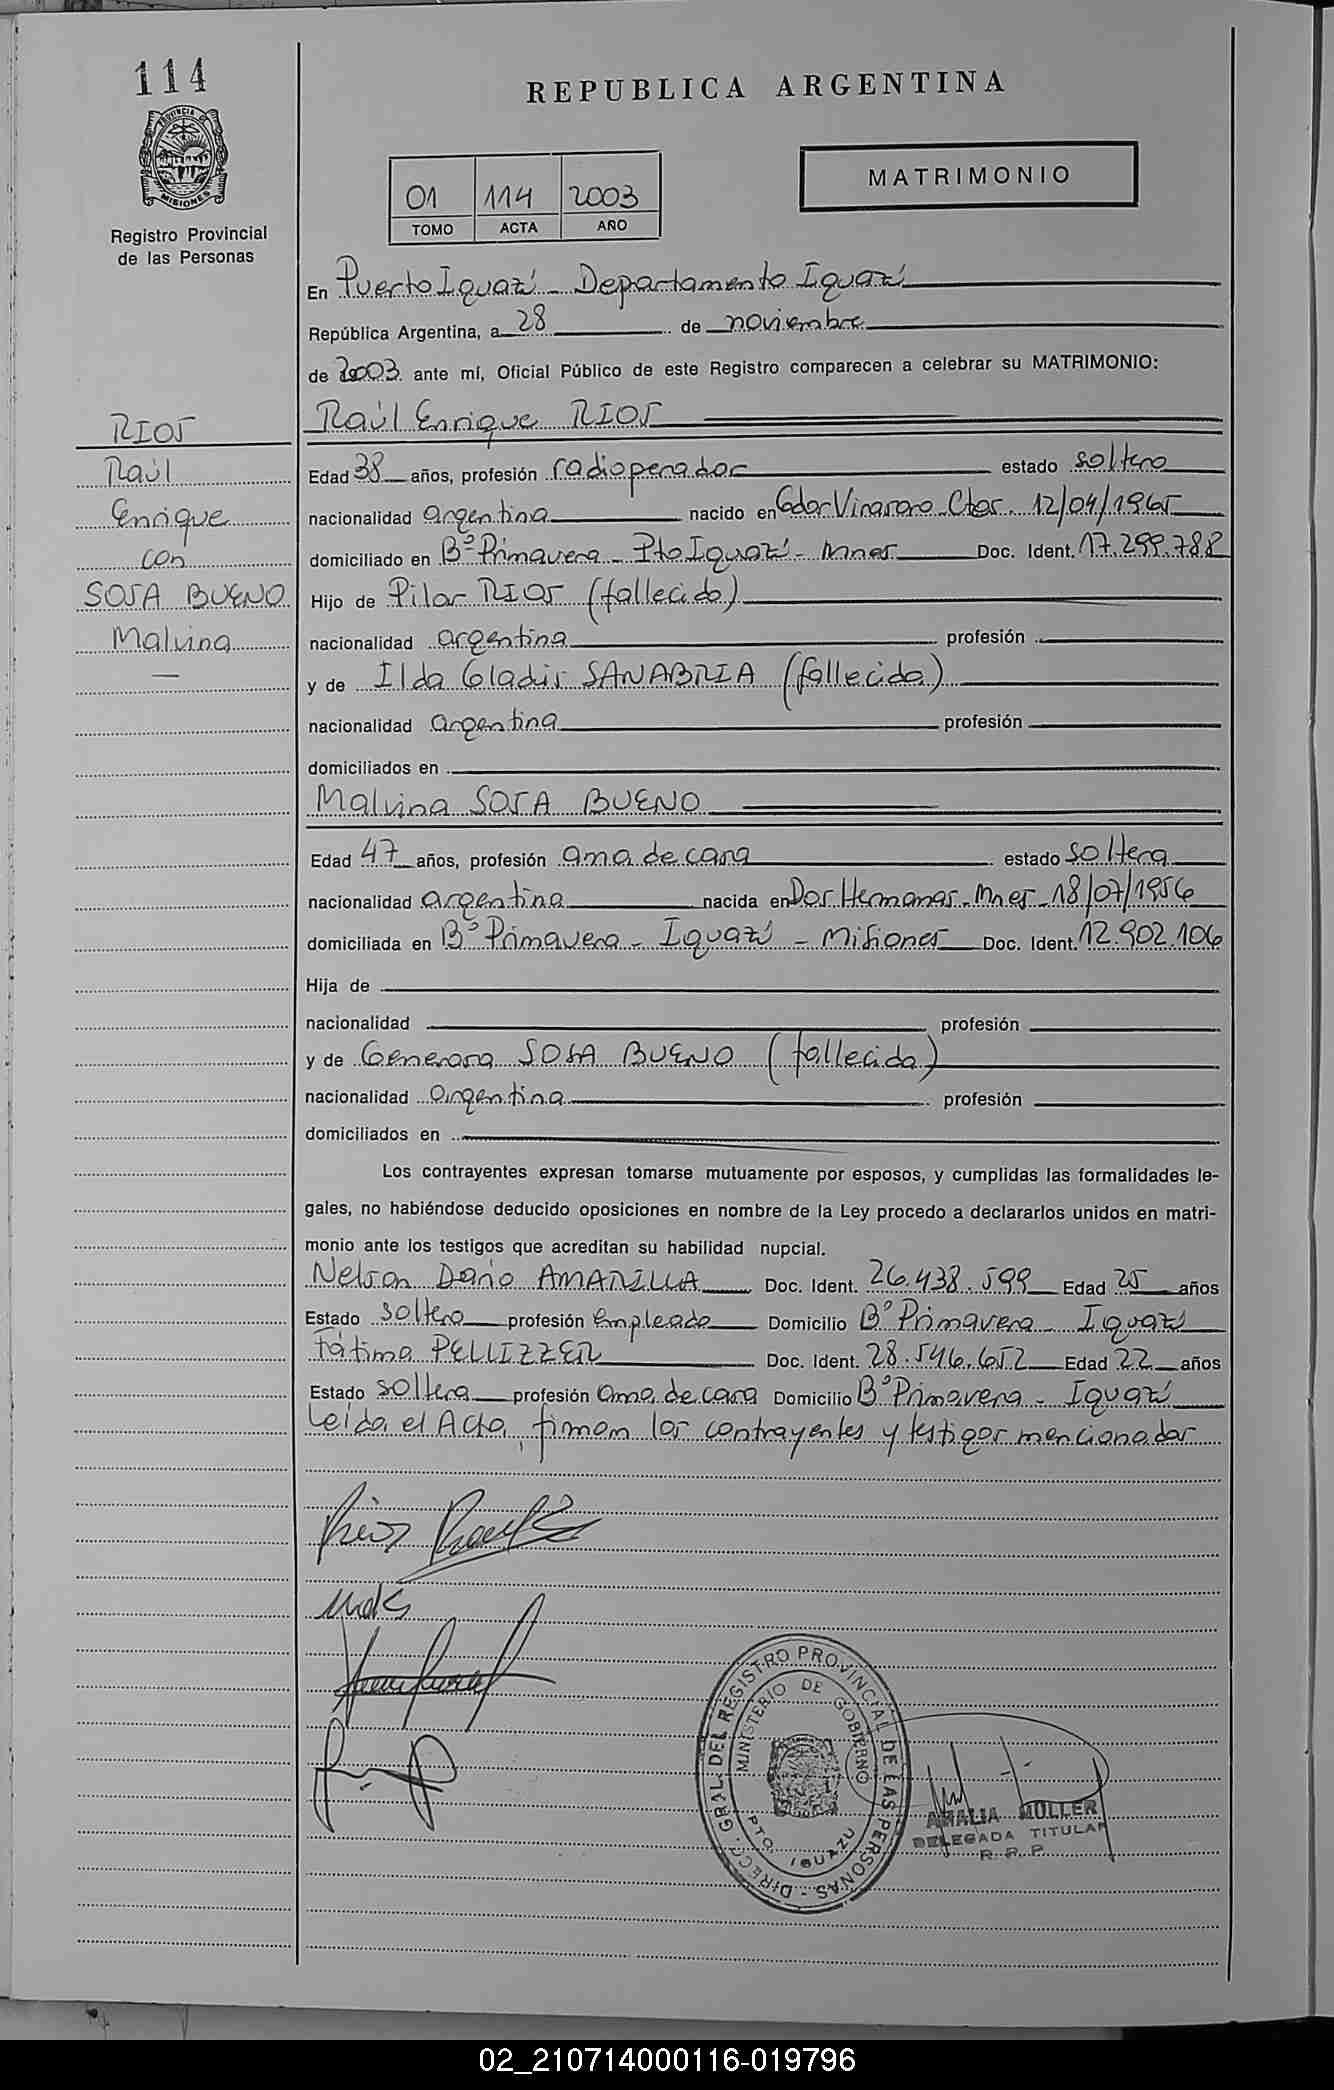 114
PROVINCIA DE
MISIONES
Registro Provincial
de las Personas
REPUBLICA ARGENTINA
MATRIMONIO
01 114 2003
TOMO ACTA AÑO
En Puerto Iguazú - Departamento Iguazú
República Argentina, a 28 de noviembre
de 2003 ante mí, Oficial Público de este Registro comparecen a celebrar su MATRIMONIO:
RIOS
Raúl
Enrique
con
SOSA BUENO
Malvina
—
Raúl Enrique RIOS
Edad 38 años, profesión radioperador estado soltero
nacionalidad argentina nacido en Gdor Virasoro - Ctes. 12/04/1965
domiciliado en Bº Primavera - Pto Iguazú - Mnes Doc. Ident. 17.299.788
Hijo de Pilar RIOS (fallecido)
nacionalidad argentina profesión
y de Ilda Gladis SANABRIA (fallecida)
nacionalidad argentina profesión
domiciliados en
Malvina SOSA BUENO
Edad 47 años, profesión ama de casa estado soltera
nacionalidad argentina nacida en Dos Hermanas - Mnes - 18/07/1956
domiciliada en Bº Primavera - Iguazú - Misiones Doc. Ident. 12.902.106
Hija de
nacionalidad profesión
y de Generosa SOSA BUENO (fallecida)
nacionalidad argentina profesión
domiciliados en
Los contrayentes expresan tomarse mutuamente por esposos, y cumplidas las formalidades le-
gales, no habiéndose deducido oposiciones en nombre de la Ley procedo a declararlos unidos en matri-
monio ante los testigos que acreditan su habilidad nupcial.
Nelson Dario AMARILLA Doc. Ident. 26.438.599 Edad 25 años
Estado soltero profesión empleado Domicilio Bº Primavera - Iguazú
Fátima PELLIZZER Doc. Ident. 28.546.652 Edad 22 años
Estado soltera profesión ama de casa Domicilio Bº Primavera - Iguazú
Leída el Acta, firman los contrayentes y testigos mencionados
Rios Raul E
DIRECC. GRAL. DEL REGISTRO PROVINCIAL DE LAS PERSONAS
MINISTERIO DE GOBIERNO
PTO. IGUAZU
AMALIA MULLER
DELEGADA TITULAR
R. P. P.
02_210714000116-019796